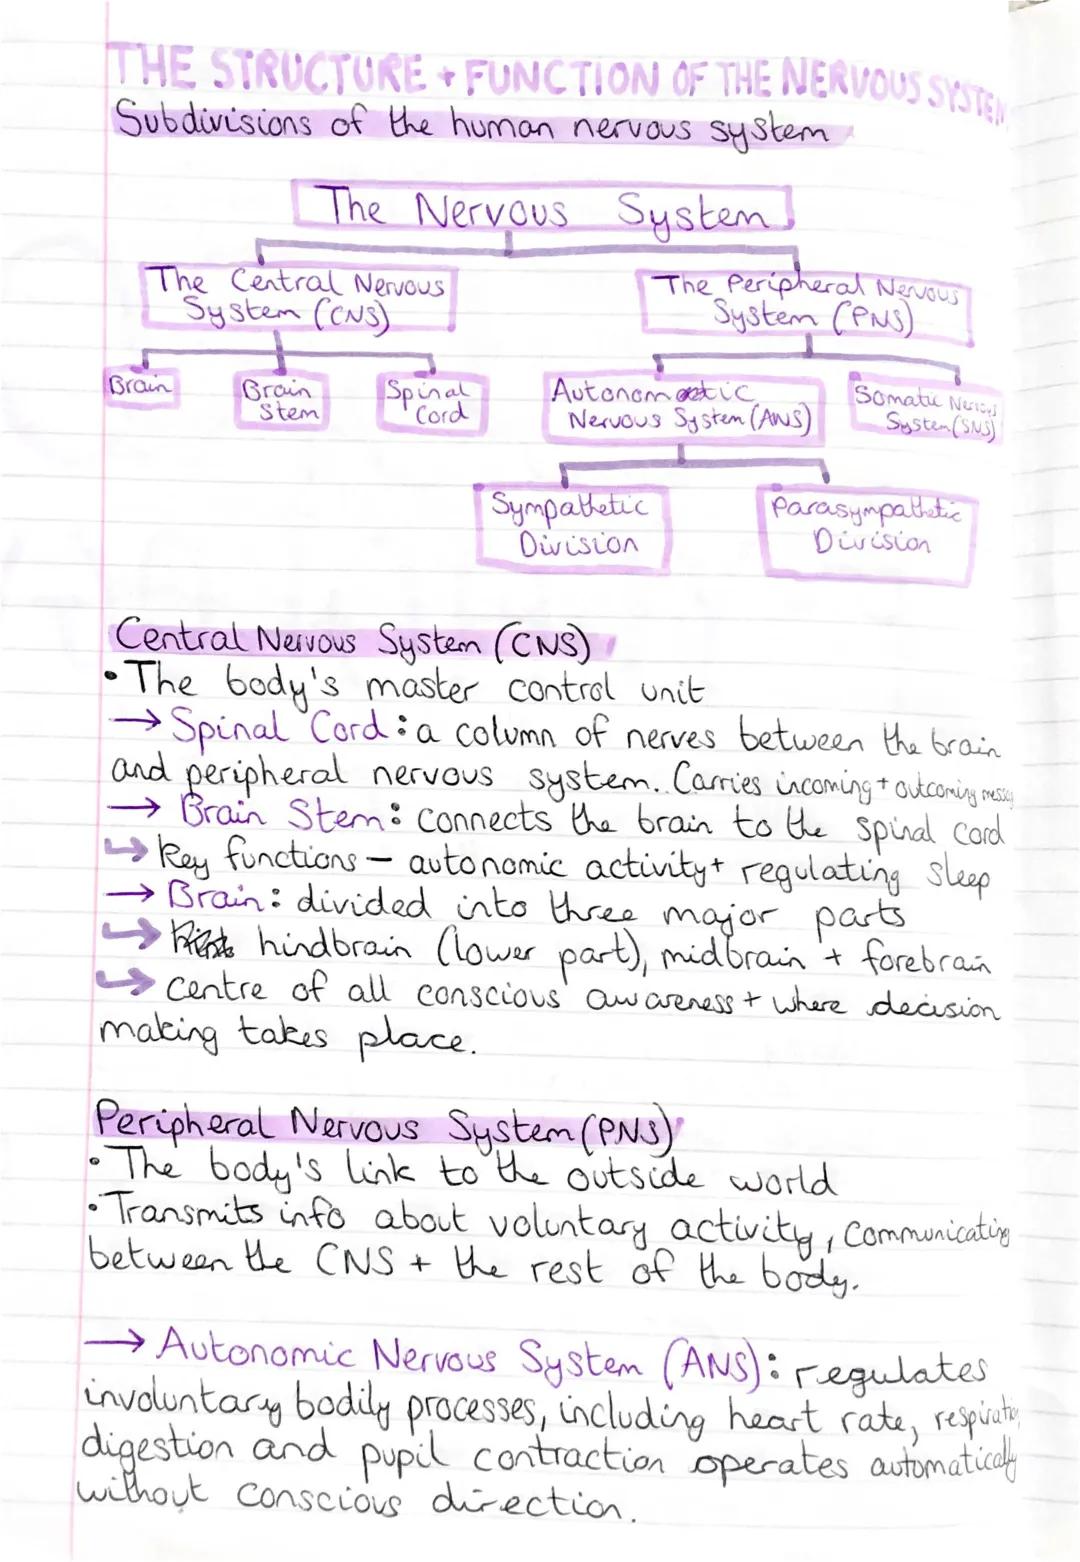 THE STRUCTURE + FUNCTION OF THE NERVOUS SYSTEM
Subdivisions of the human nervous system
The Nervous System
The Central Nervous
System (CNS)
The Peripheral Nervous
System (PNS)
Brain
Brain
Stem
Spinal
Cord
Autonomic
Nervous System (ANS)
Somatic Nervous
System (SNS)
Sympathetic
Division
Parasympathetic
Division
Central Nervous System (CNS)
• The body's master control unit
→ Spinal Cord: a column of nerves between the brain
and peripheral nervous system. Carries incoming + outcoming
→ Brain Stem: connects the brain to the spinal cord
↳ key functions – autonomic activity + regulating sleep
→ Brain: divided into three major parts
↳ hindbrain (lower part), midbrain + forebrain
↳ centre of all conscious awareness + where decision
making takes place.
Peripheral Nervous System (PNS)
• The body's link to the outside world
• Transmits info about voluntary activity, communicating
between the CNS + the rest of the body.
→ Autonomic Nervous System (ANS): regulates
involuntary bodily processes, including heart rate, respiration,
digestion and pupil contraction operates automatically
without conscious direction.